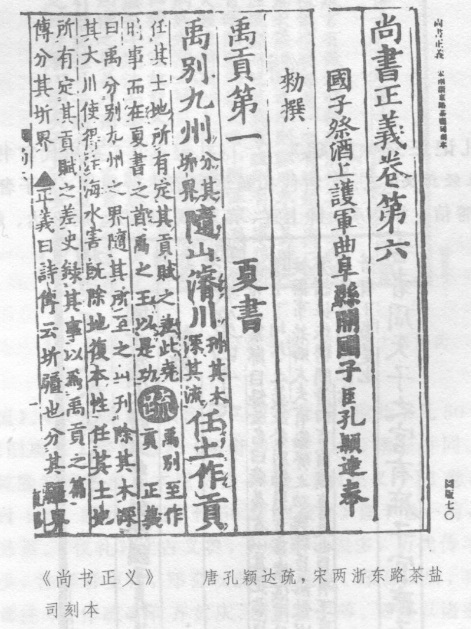 尚書正義 宋兩浙東路茶鹽司刻本
圖版七〇
尚書正義卷第六
國子祭酒上護軍曲阜縣開國子臣孔穎達奉
勑撰
禹貢第一 夏書
禹別九州 分其圻界 隨山濬川 刊其木深其流 任土作貢
任其土地所有定其貢賦之差此堯時事而在夏書之首禹之王以是功 疏 禹別至作貢 正義
曰禹分別九州之界隨其所至之山刊除其木深
其大川使得注海水害既除地復本性任其土地
所有定其貢賦之差史錄其事以爲禹貢之篇
傳分其圻界 正義曰詩傳云圻疆也分其疆界
《尚书正义》 唐孔颖达疏,宋两浙东路茶盐
司刻本